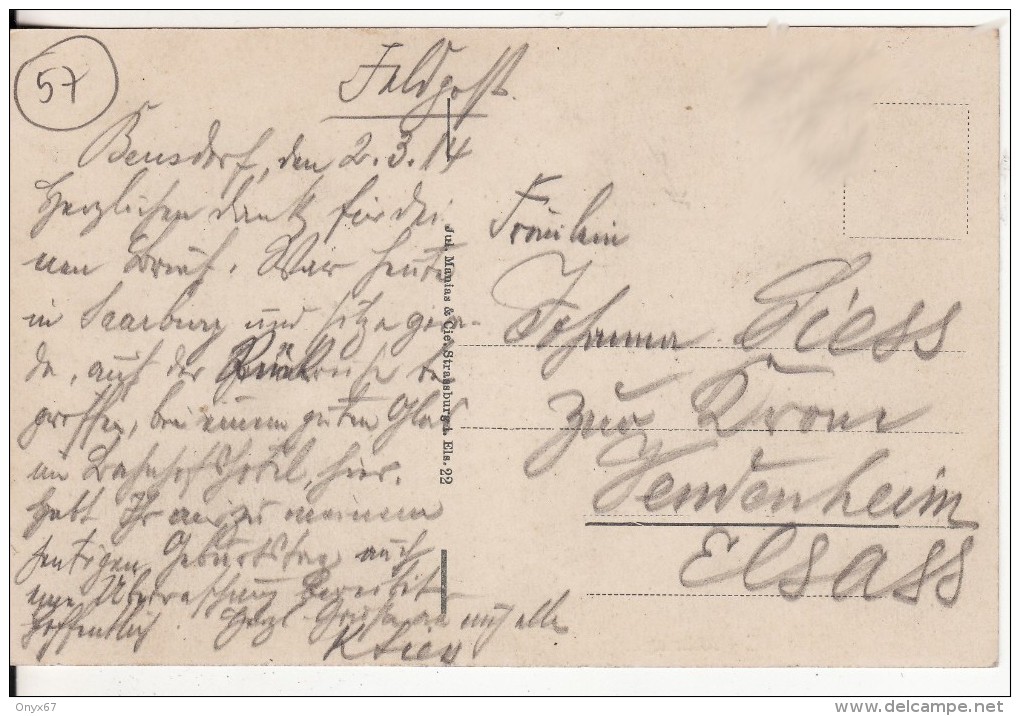 57
Feldpost.
Bensdorf, den 2.3.14
Herzlichen Dank für dei-
nen Brief. War heute
in Saarburg und sitze gera-
de, auf der Rück
groffen, bei einem guten Glas
im Bahnhofshotel, hier.
Habt Ihr mir zu meinem
heutigen Geburtstag auch
Überraschung bereitet
Hoffentlich Herzl. Grüße an euch alle
Jul. Manias & Cie. Strassburg i. Els. 22
Fräulein
Johanna Giess
zur Krone
Vendenheim
Elsass
Onyx67
www.delcampe.net